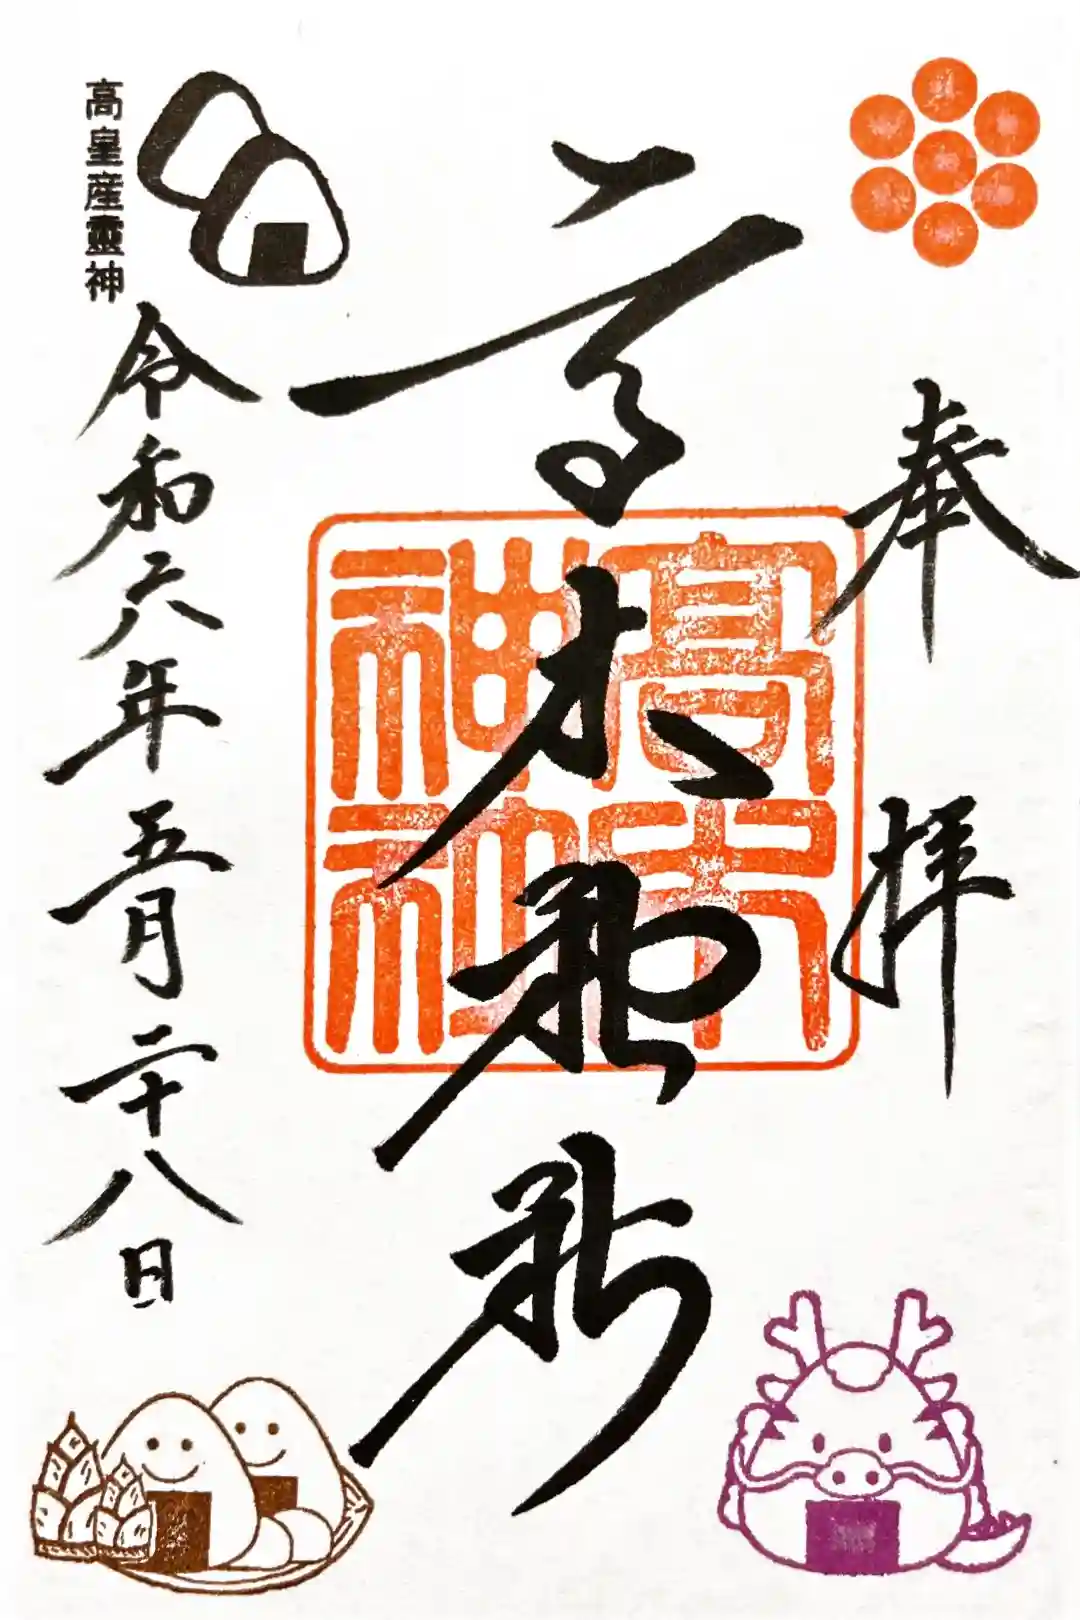 奉拝
高木神社
高木神神社
高皇産霊神
令和六年五月二十八日